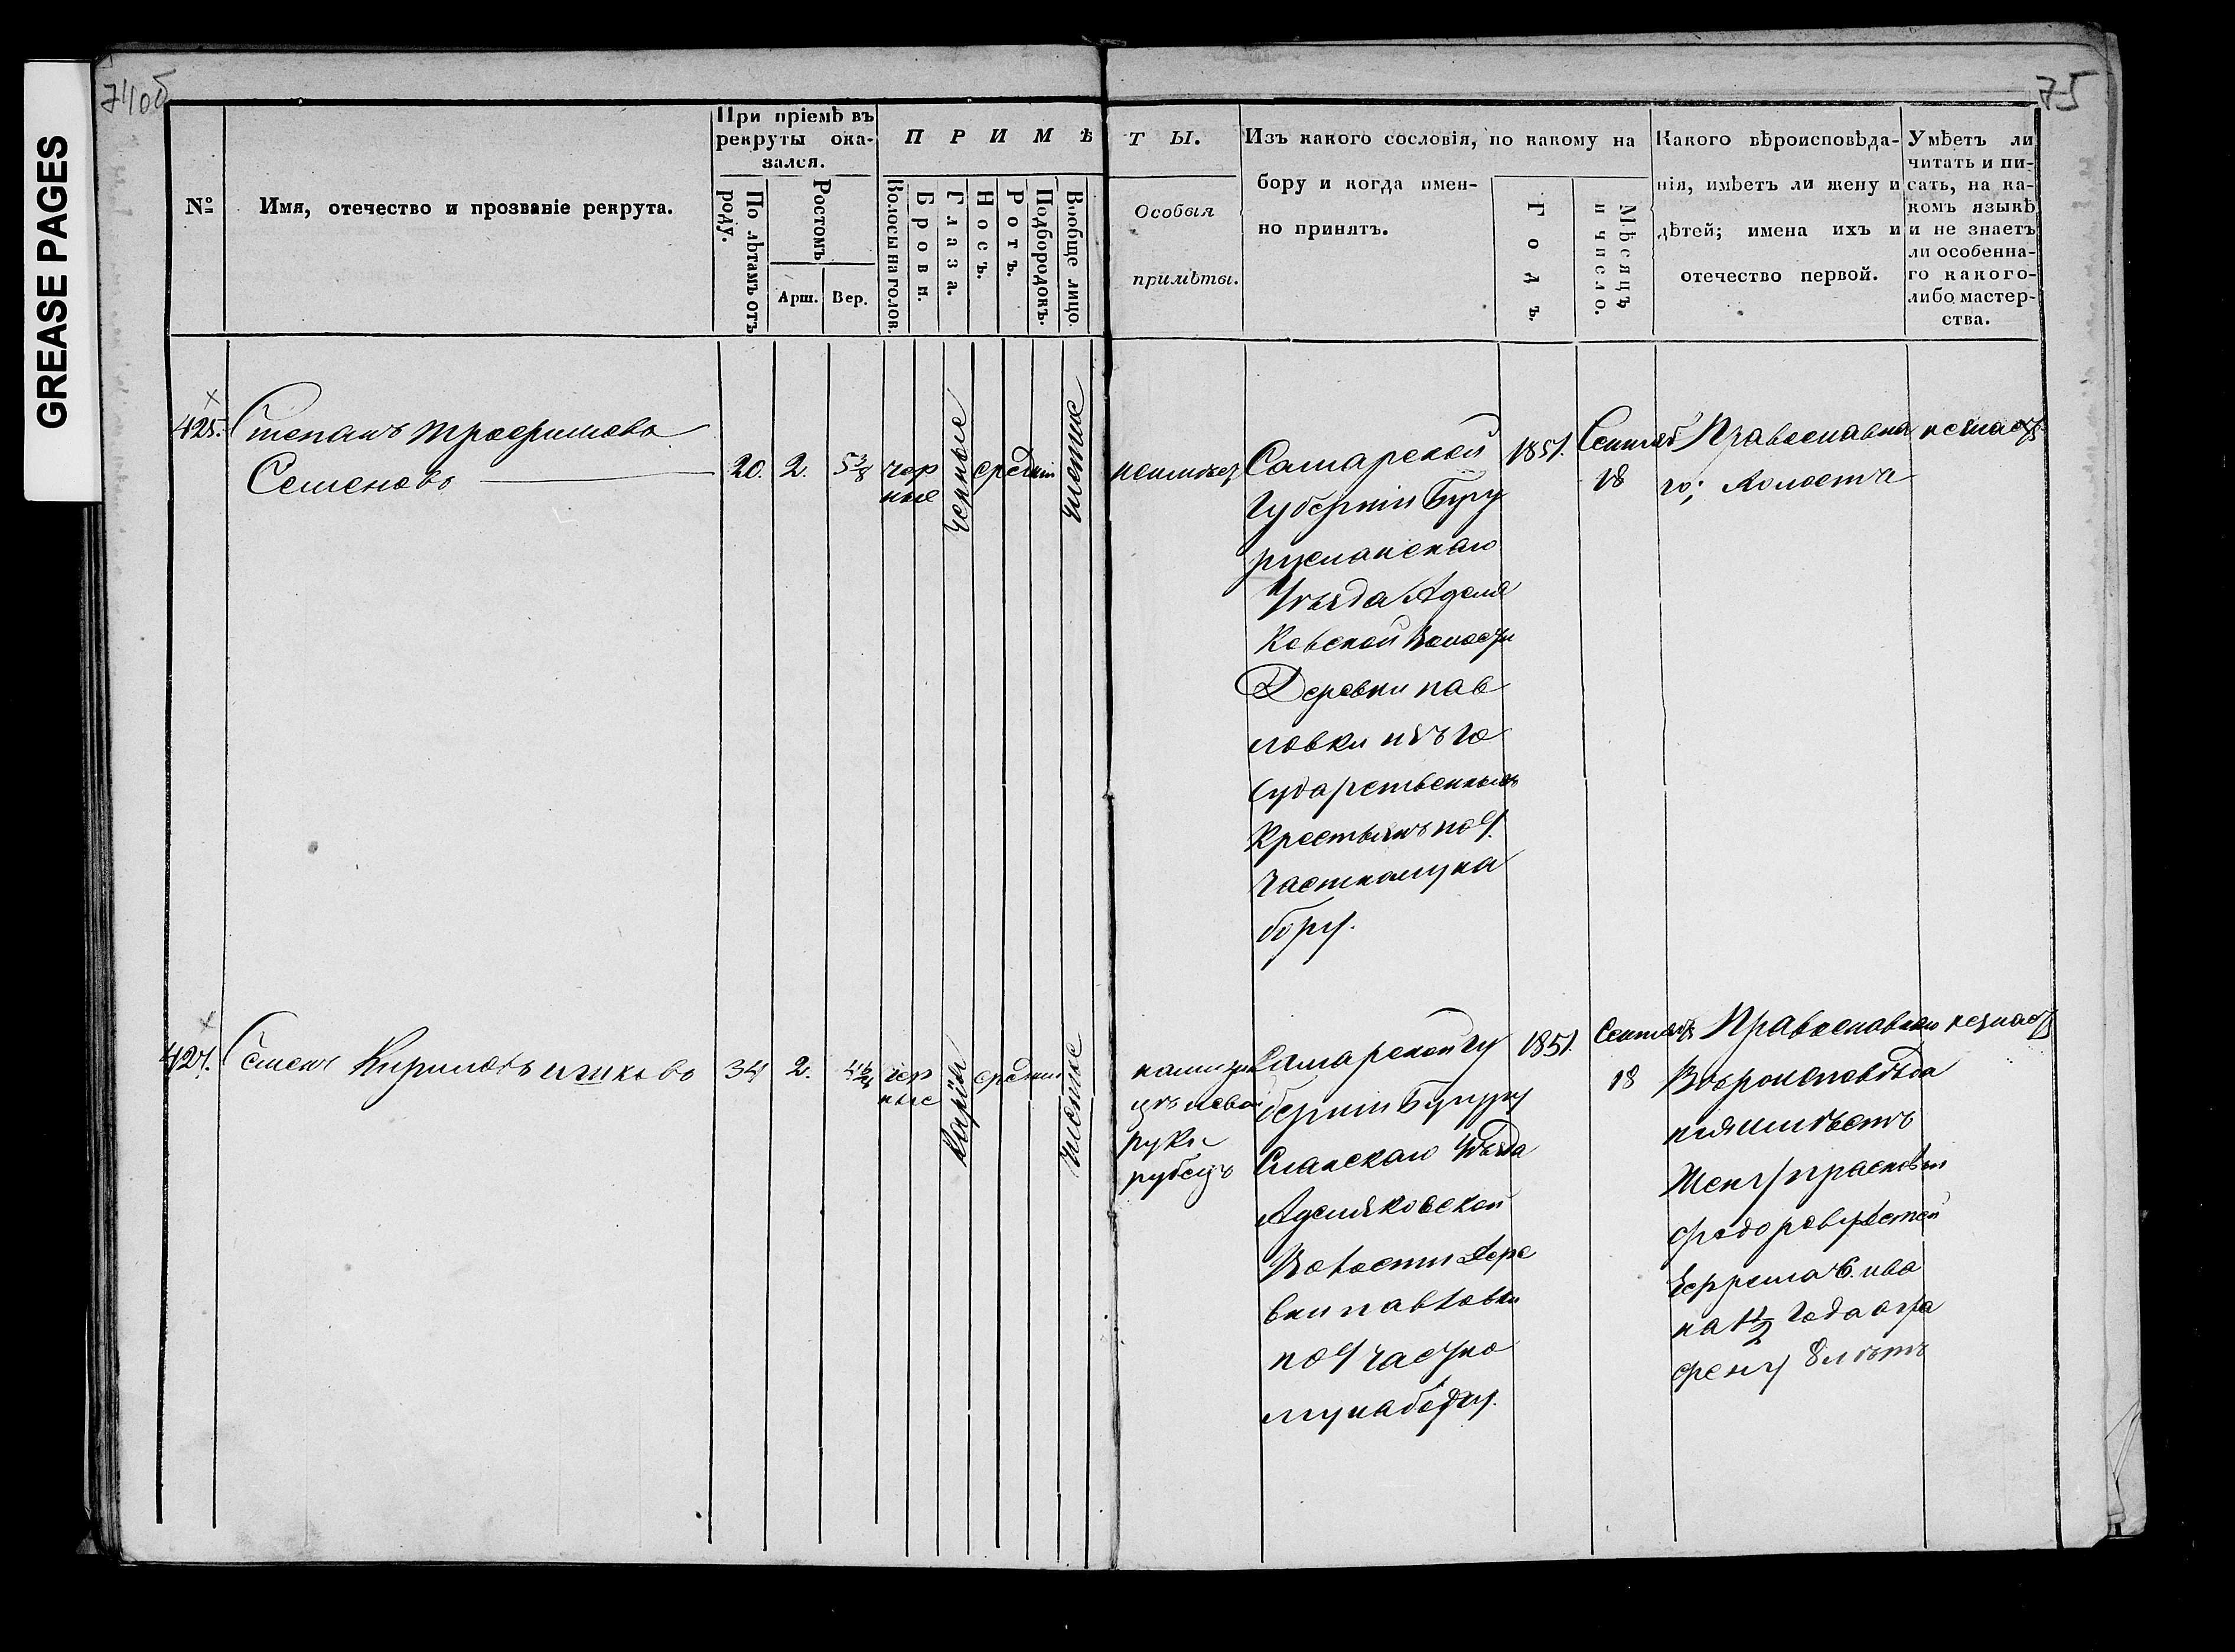 GREASE PAGES
74об
75
№
Имя, отечество и прозваніе рекрута.
При пріемѣ въ
рекруты ока-
зался.
По лѣтамъ отъ
роду.
Ростомъ
Арш.
Вер.
ПРИМѢ
ТЫ.
Волосы на голов.
Брови.
Глаза.
Носъ.
Ротъ.
Подбородокъ.
Вообще лицо.
Особыя
примѣты.
Изъ какого сословія, по какому на
бору и когда имен-
но принятъ.
Годъ.
Мѣсяцъ
и число.
Какого вѣроисповѣда-
нія, имѣетъ ли жену и
дѣтей; имена ихъ и
отечество первой.
Умѣетъ ли
читать и пи-
сать, на ка-
комъ языкѣ
и не знаетъ
ли особенна-
го какого-
либо мастер-
ства.
425.
Степанъ Трофимовъ
Семеновъ
20. 2. 5 3/8
чер
ные
черные
средній
чистое
неимѣет
Самарской
Губерніи Бугу
русланскаго
Уѣзда Аделя
ковской Волости
Деревни пав
ловки изъ го
сударственныхъ
Крестьянъ по 9.
Частному на
бору.
1851.
Сентяб
18
Православна
го; холостъ
незнает
427.
Семенъ Кириловъ
34 2.
чер
ные
Карія
средній
чистое
левой
руки
рубецъ
Самарской гу
берніи Бугуру
Сланскаго Уѣзда
Аделяковской
Волости Дере
вни павловки
по 9 частно
му набору.
1851.
Сентяб
18
Православнаго
Вѣроисповѣда
нія имѣетъ
Жену прасковью
федорову детей
Ефрема 6. ива
на 1 1/2 Года агра
фену 8 лѣтъ
незнает